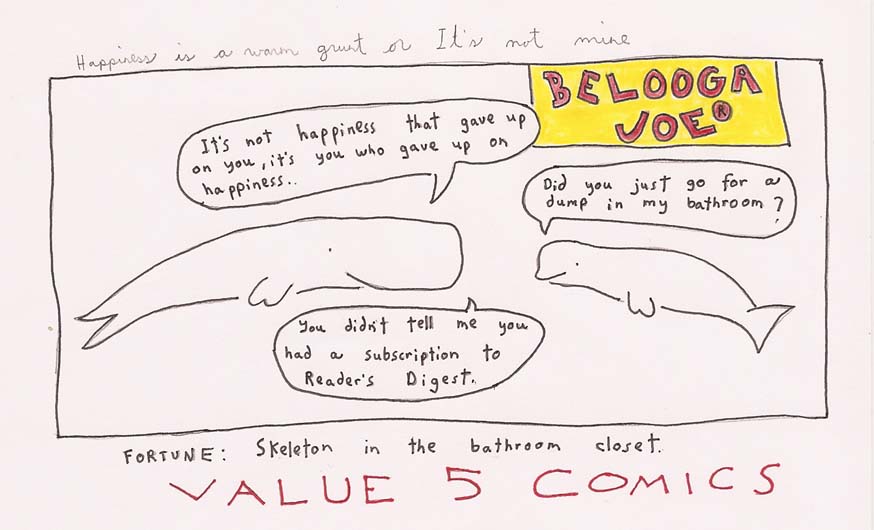 Happiness is a warm grunt or It's not mine
BELOOGA
JOE®
It's not happiness that gave up
on you, it's you who gave up on
happiness..
Did you just go for a
dump in my bathroom?
You didn't tell me you
had a subscription to
Reader's Digest.
FORTUNE: Skeleton in the bathroom closet.
VALUE 5 COMICS